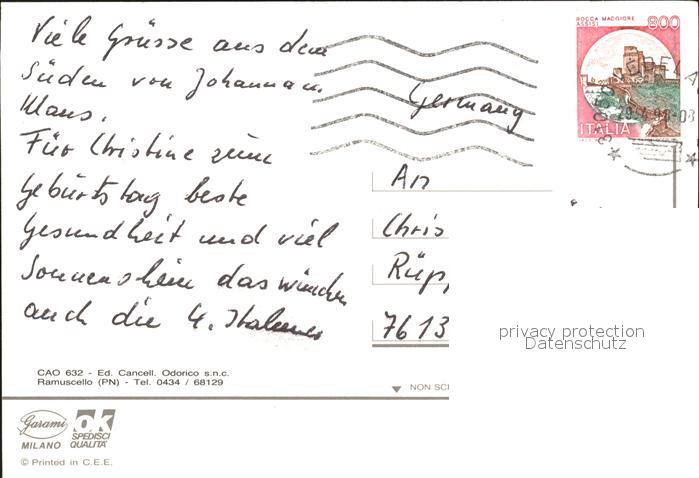 Viele Grüsse aus dem
Süden von Johanna u.
Klaus.
Für Christine zum
Geburtstag beste
Gesundheit und viel
Sonnenschein das wünschen
auch die 4. Italiener
Germany
An
Chris
Rüpp
7613
ROCCA MAGGIORE
ASSISI
800
ITALIA
privacy protection
Datenschutz
CAO 632 - Ed. Cancell. Odorico s.n.c.
Ramuscello (PN) - Tel. 0434 / 68129
NON SC
Garami
MILANO
OK
SPEDISCI
QUALITÀ
© Printed in C.E.E.